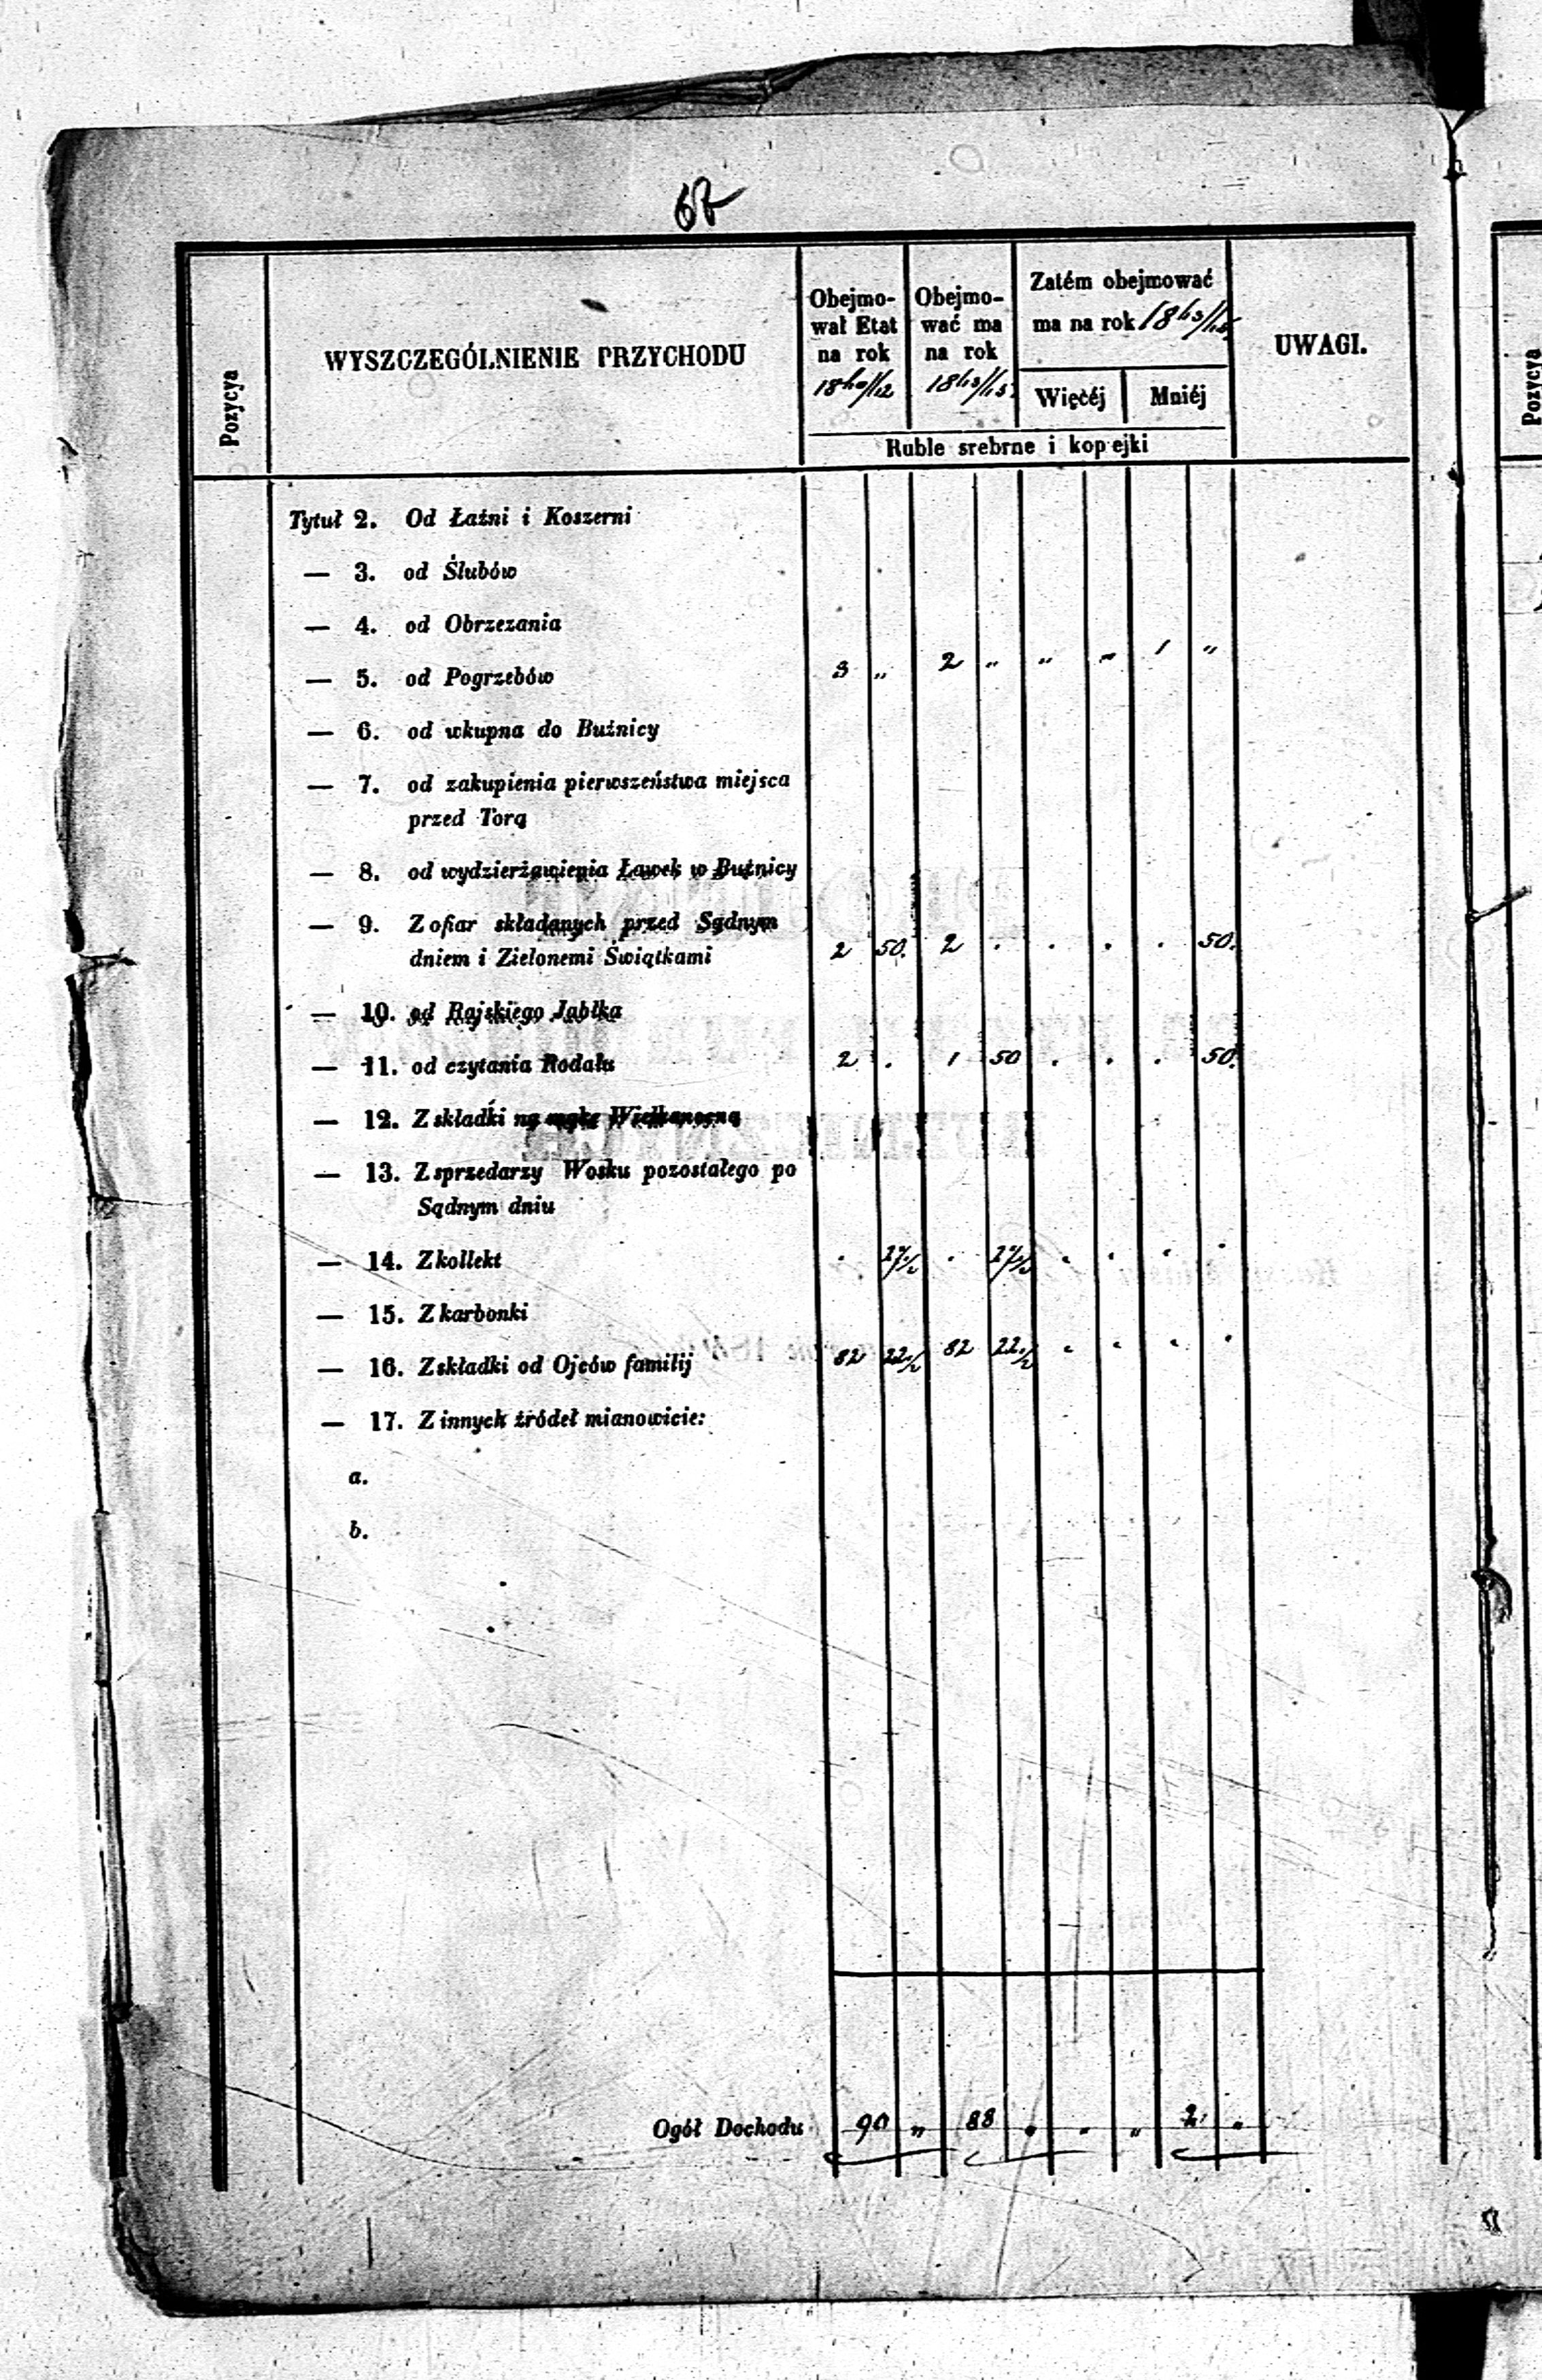 67
Pozycya
WYSZCZEGÓLNIENIE PRZYCHODU
Obejmo-
wał Etat
na rok
1840/42
Obejmo-
wać ma
na rok
1843/45.
Zatém obejmować
ma na rok 1843/45.
Więcéj
Mniéj
Ruble srebrne i kopejki
UWAGI.
Tytuł 2. Od Łaźni i Koszerni
— 3. od Ślubów
— 4. od Obrzezania
— 5. od Pogrzebów 3 „ 2 „ „ „ 1 „
— 6. od wkupna do Buźnicy
— 7. od zakupienia pierwszeństwa miejsca
przed Torą
— 8. od wydzierżawienia Ławek w Buźnicy
— 9. Z ofiar składanych przed Sądnym
dniem i Zielonemi Świątkami 2 50. 2 . . . . 50.
— 10. od Rajskiego Jabłka
— 11. od czytania Rodału 2 . 1 50 . . . 50.
— 12. Z składki na mąkę Wielkanocną
— 13. Z sprzedarzy Wosku pozostałego po
Sądnym dniu
— 14. Z kollekt . 27½ . 27½ . . . .
— 15. Z karbonki
— 16. Z składki od Ojców familij 82 22½ 82 22½ . . . .
— 17. Z innych źródeł mianowicie:
a.
b.
Ogół Dochodu 90 „ 88 . . „ 2 .
Pozycya